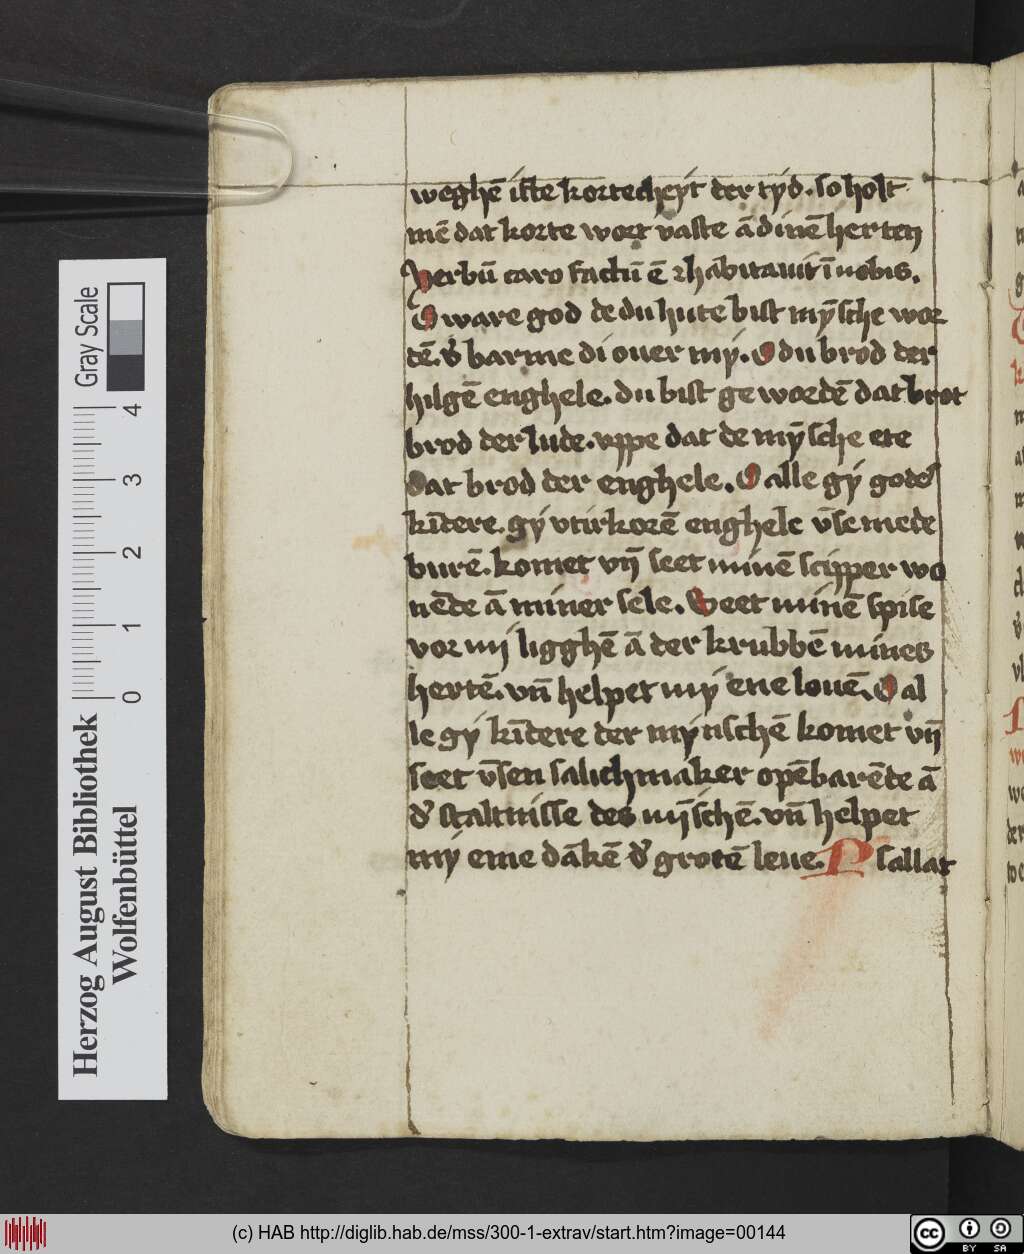 weghē iſte kortecheyt der tyd. so holt
mē dat korte wort vaſte ā dinē herten
Verbū caro factū ē ⁊ habitauit ī nobis.
O ware god de du hute biſt mȳſche wor
dē. v̓ barme di ouer my. O du brod der
hilgē enghele. du biſt ge wordē dat brot
brod der lude. uppe dat de mȳſche ete
dat brod der enghele. O alle gy godes
kīdere. gy vtirkorē enghele vſ̄e mede
burē. komet vn̄ seet minē scipper wo
nēde ā miner sele. Seet minē spise
vor mi ligghē ā der krubbē mines
hertē. vn̄ helpet my ene louē. O al
le gy kīdere der mynschē komet vn̄
seet vſ̄en salichmaker opēbarēde ā
d̓ staltnisse des mīſchē. vn̄ helpet
my eme dākē d̓ grotē leue. Psallat
Gray Scale
4 3 2 1 0
Herzog August Bibliothek
Wolfenbüttel
(c) HAB http://diglib.hab.de/mss/300-1-extrav/start.htm?image=00144
cc BY SA